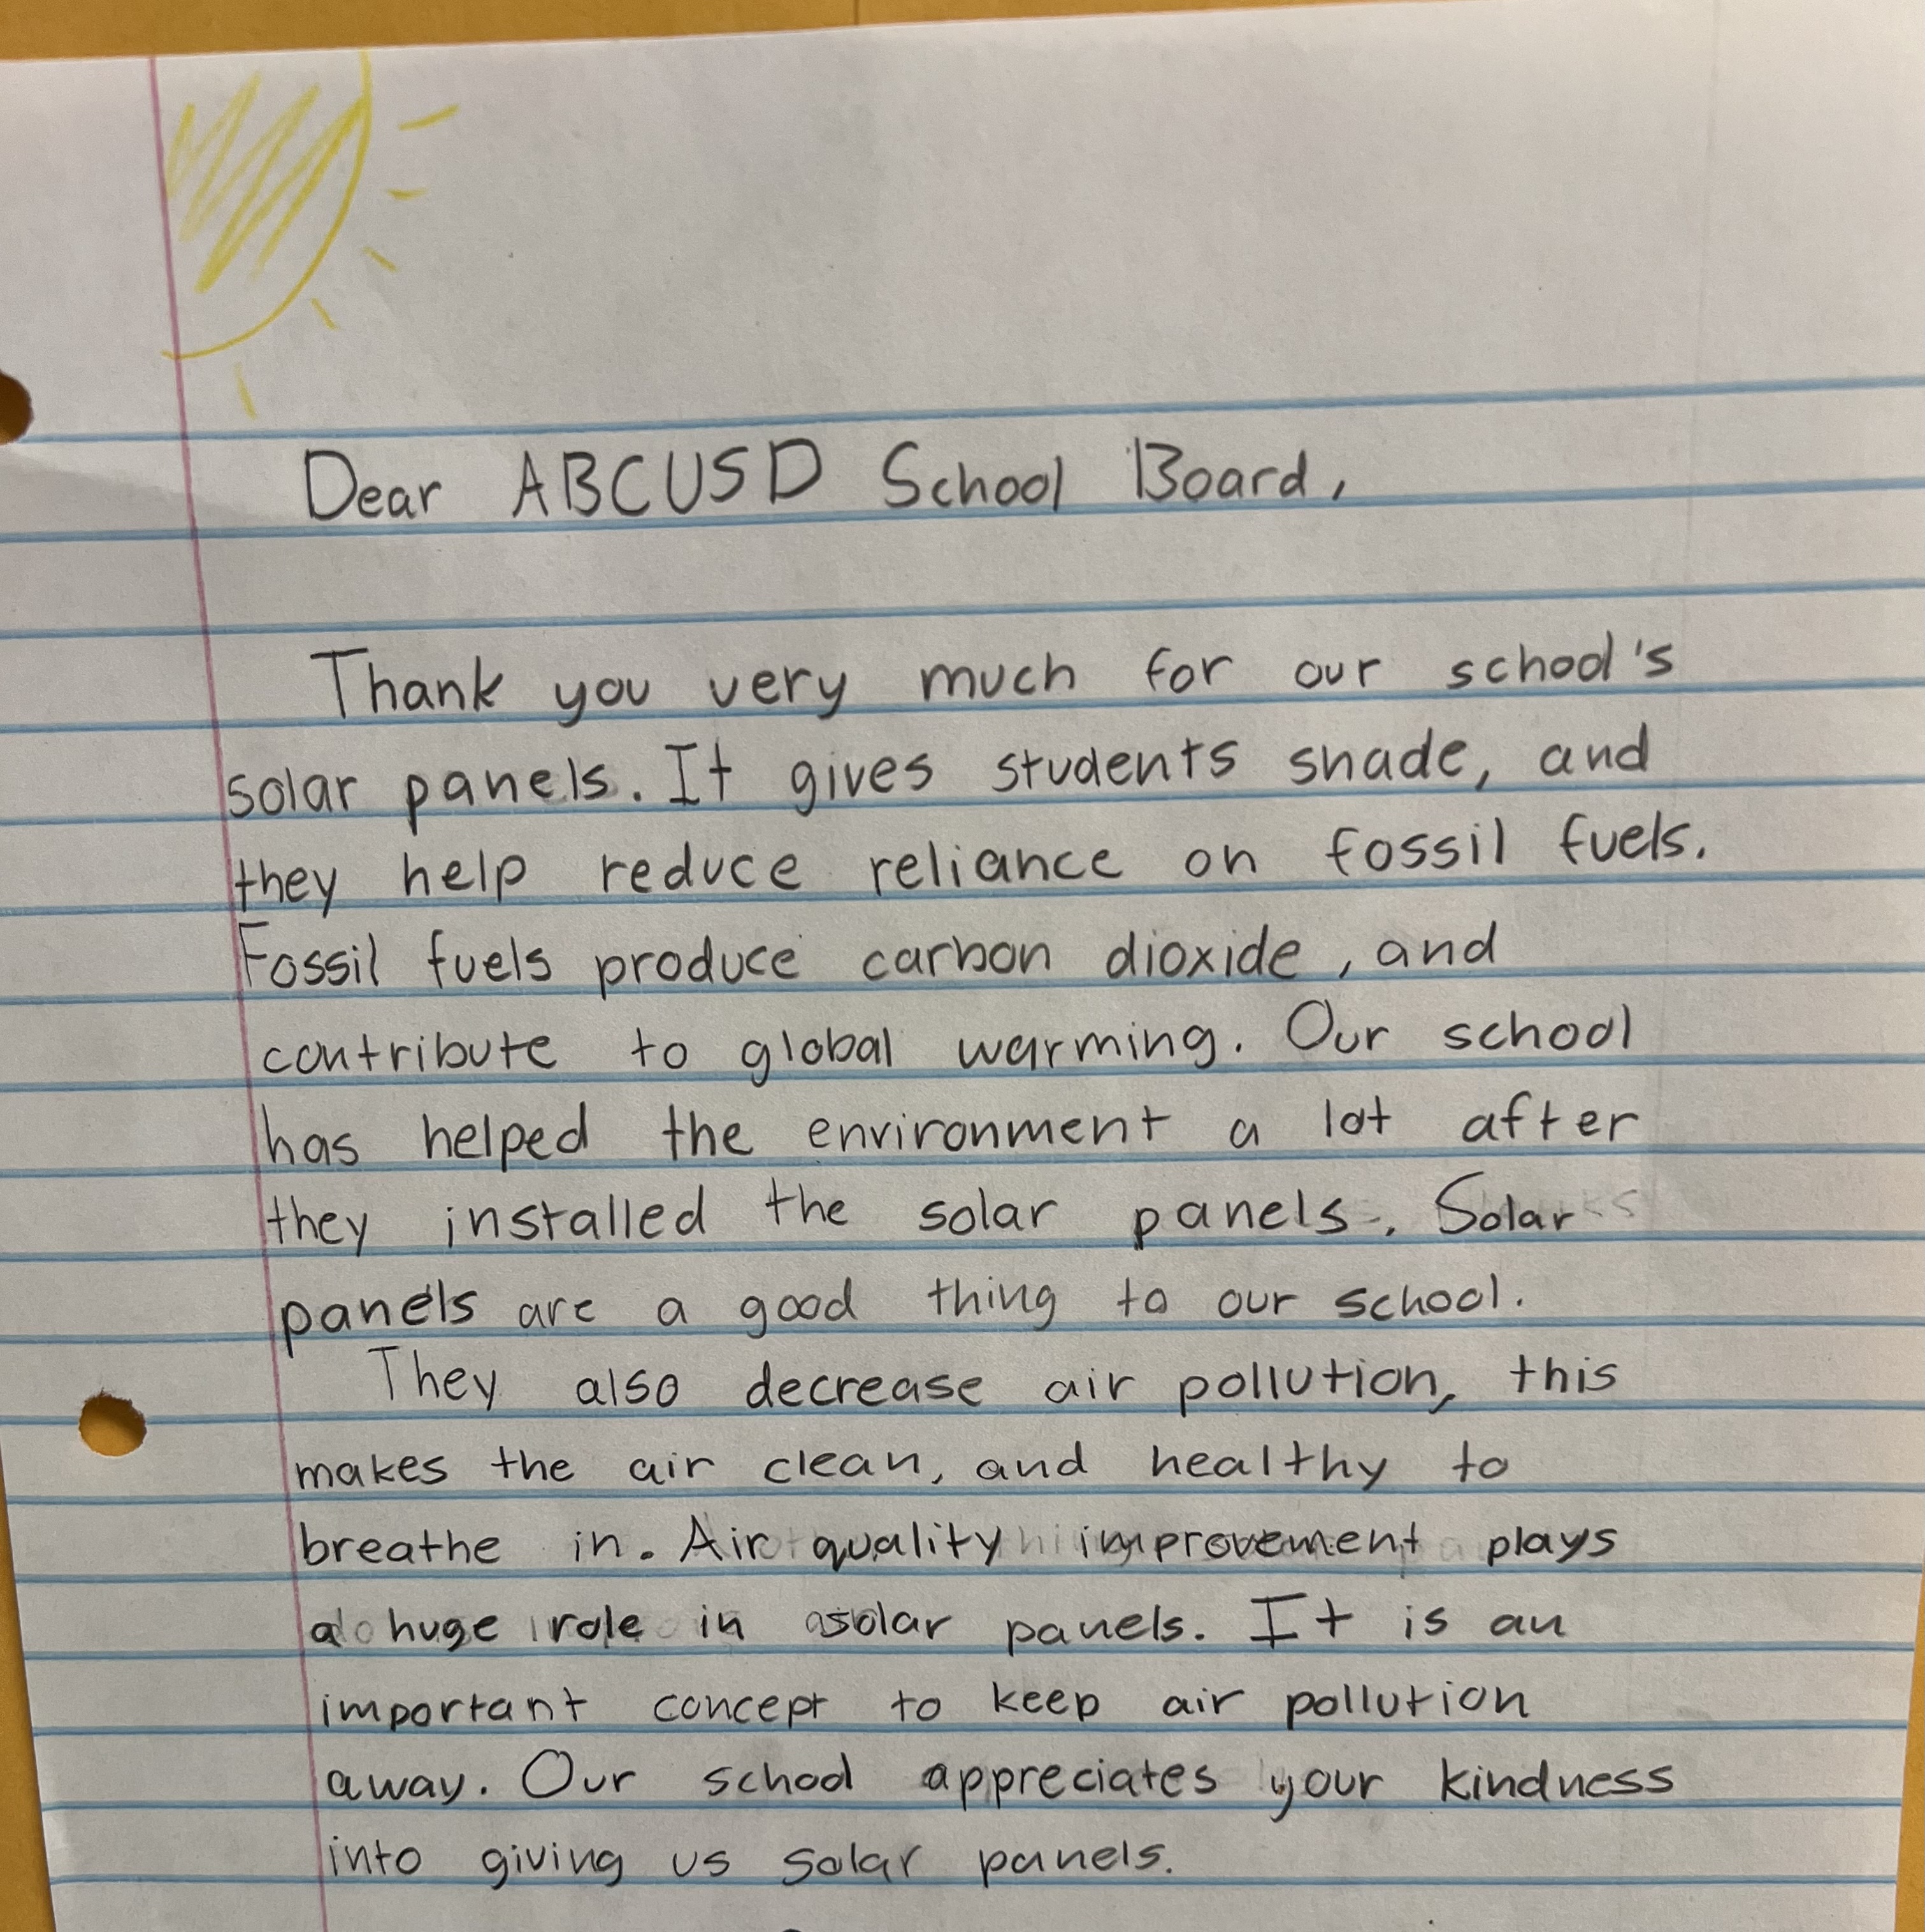 Dear ABCUSD School Board,
Thank you very much for our school's
solar panels. It gives students shade, and
they help reduce reliance on fossil fuels.
Fossil fuels produce carbon dioxide, and
contribute to global warming. Our school
has helped the environment a lot after
they installed the solar panels. Solar
panels are a good thing to our school.
They also decrease air pollution, this
makes the air clean, and healthy to
breathe in. Air quality improvement plays
a huge role in solar panels. It is an
important concept to keep air pollution
away. Our school appreciates your kindness
into giving us solar panels.